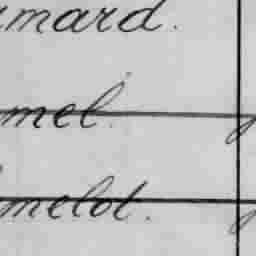 mard.
mel.
melot.